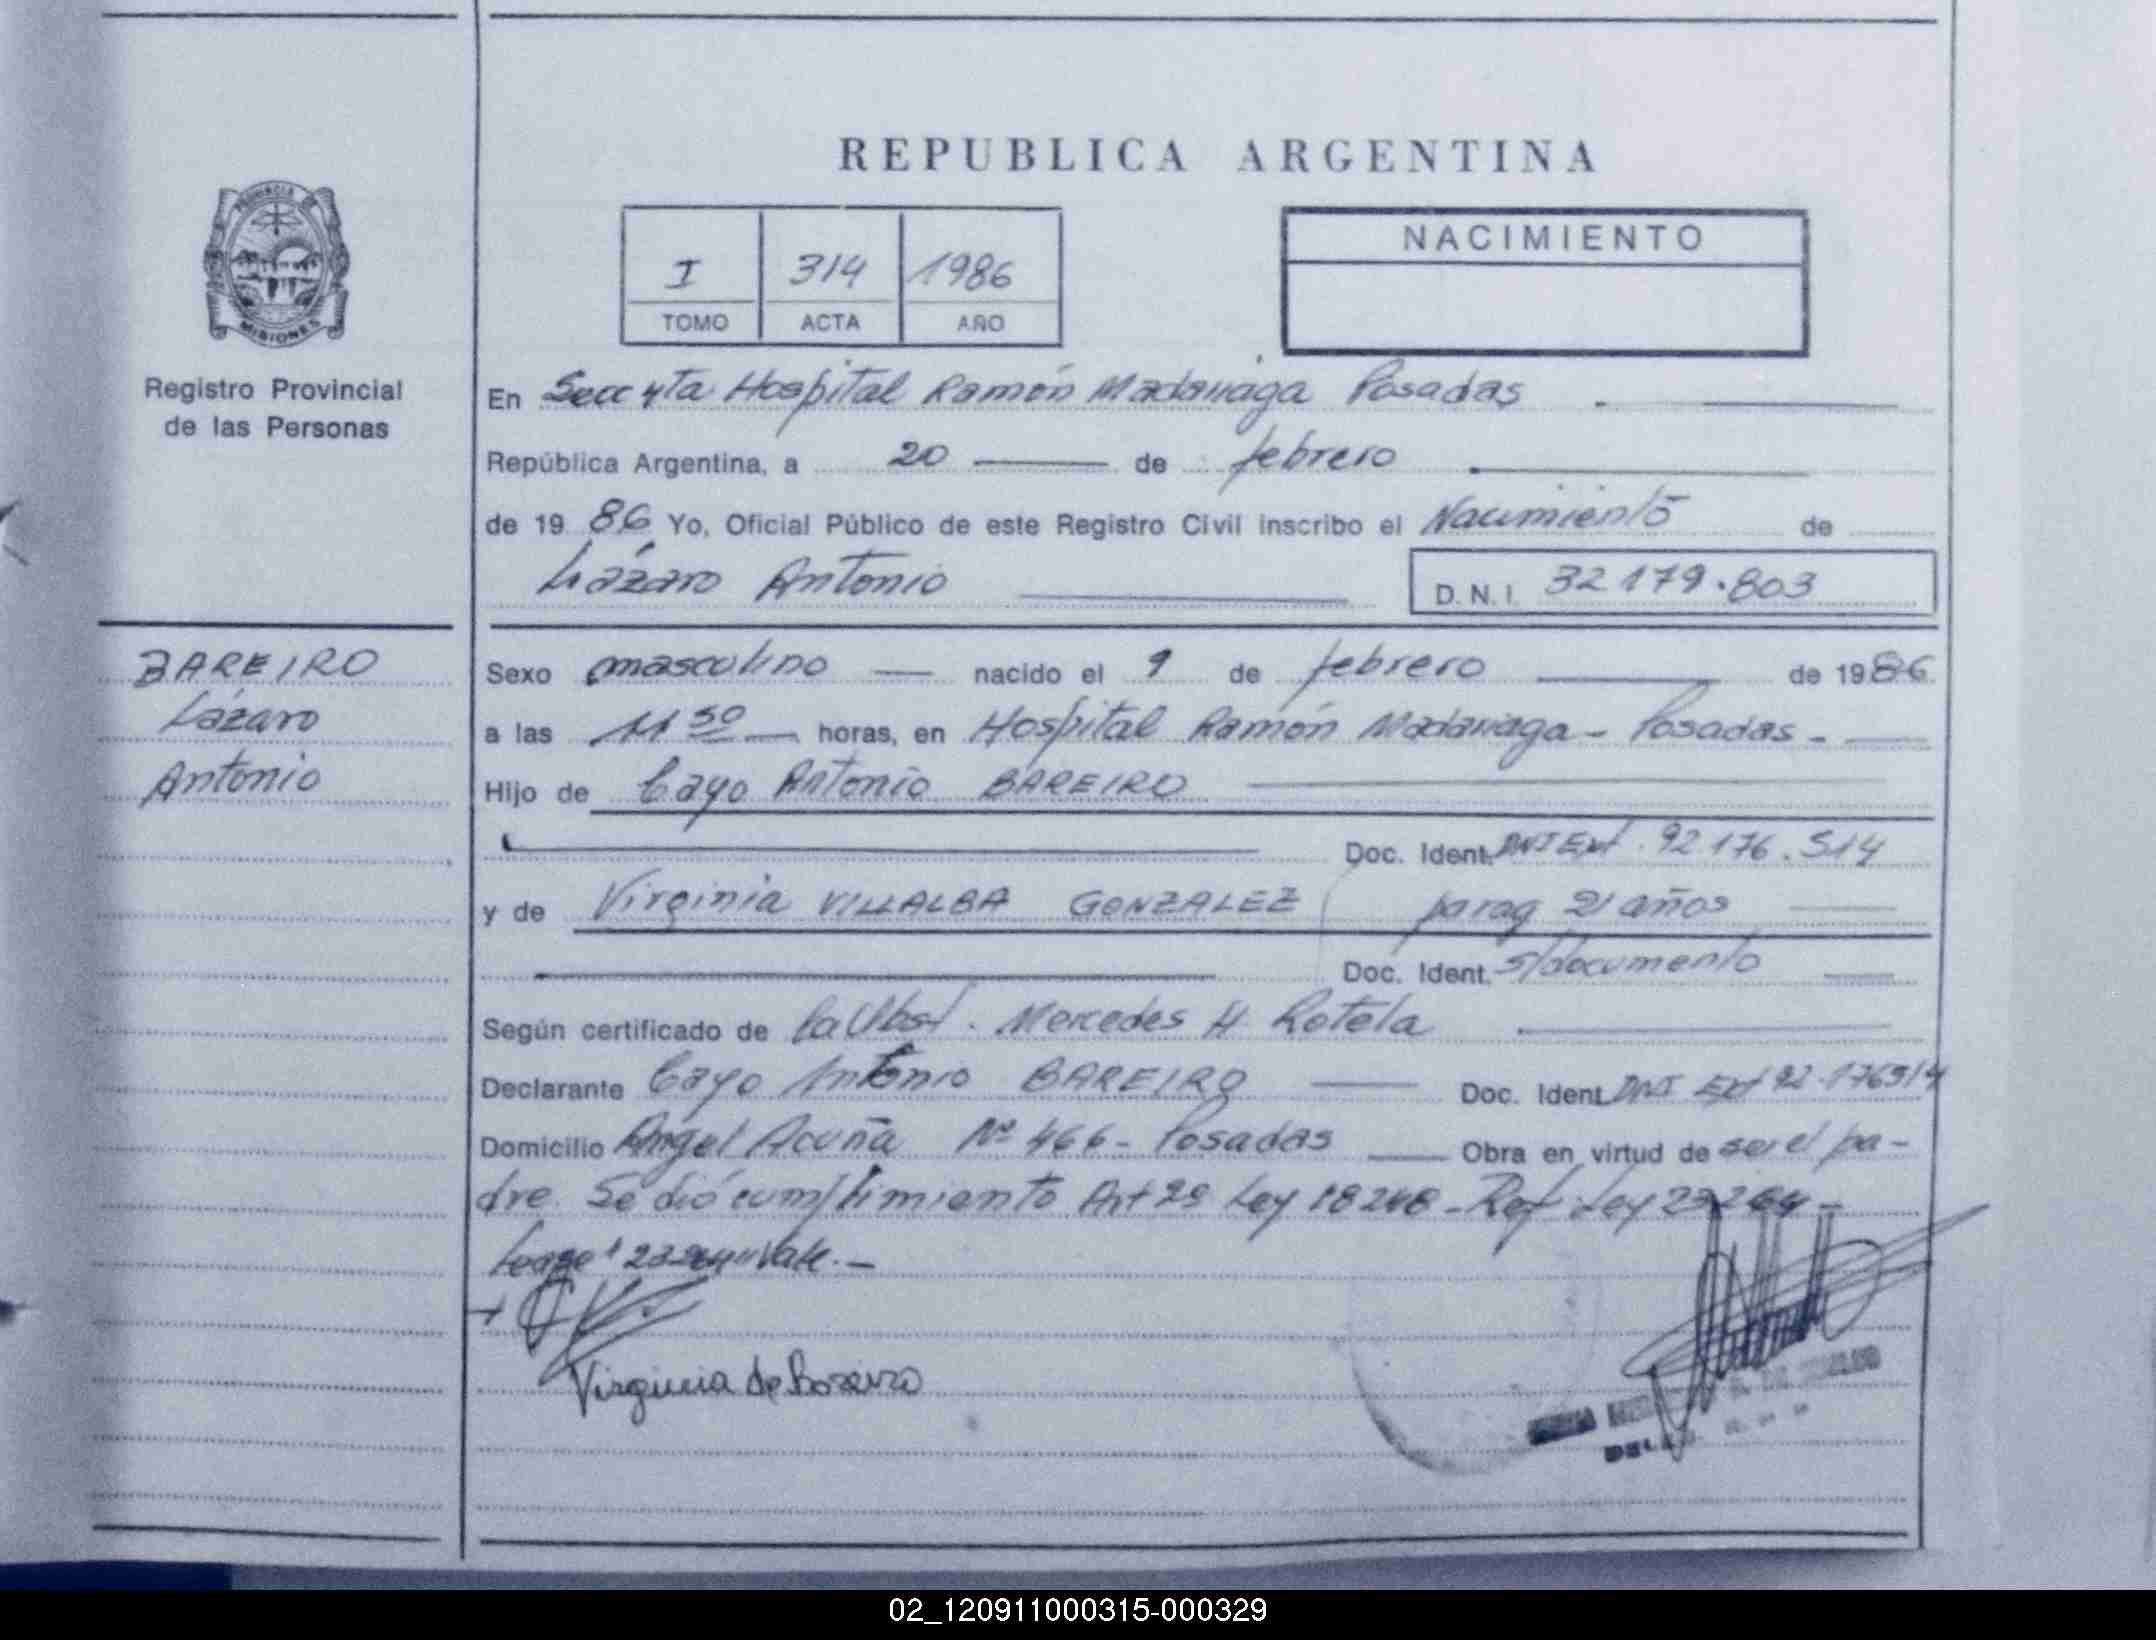 REPUBLICA ARGENTINA
PROVINCIA DE
MISIONES
Registro Provincial
de las Personas
I 314 1986
TOMO ACTA AÑO
NACIMIENTO
En Secc 4ta Hospital Ramón Madariaga Posadas
República Argentina, a 20 de febrero
de 1986 Yo, Oficial Público de este Registro Civil inscribo el Nacimiento de
Lázaro Antonio D.N.I. 32 179.803
BAREIRO
Lázaro
Antonio
Sexo masculino nacido el 9 de febrero de 1986
a las 11 30 horas, en Hospital Ramón Madariaga - Posadas -
Hijo de Cayo Antonio BAREIRO
Doc. Ident. DNI Ext. 92.176.514
y de Virginia VILLALBA GONZALEZ parag 21 años
Doc. Ident. s/documento
Según certificado de la Obst. Mercedes H. Rotela
Declarante Cayo Antonio BAREIRO Doc. Ident. DNI Ext 92.176514
Domicilio Angel Acuña Nº 466 - Posadas Obra en virtud de ser el pa-
dre. Se dió cumplimiento Art 29 Ley 18248 - Ref. Ley 23264 -
"23264" Vale. -
Virginia de Bareiro
02_120911000315-000329